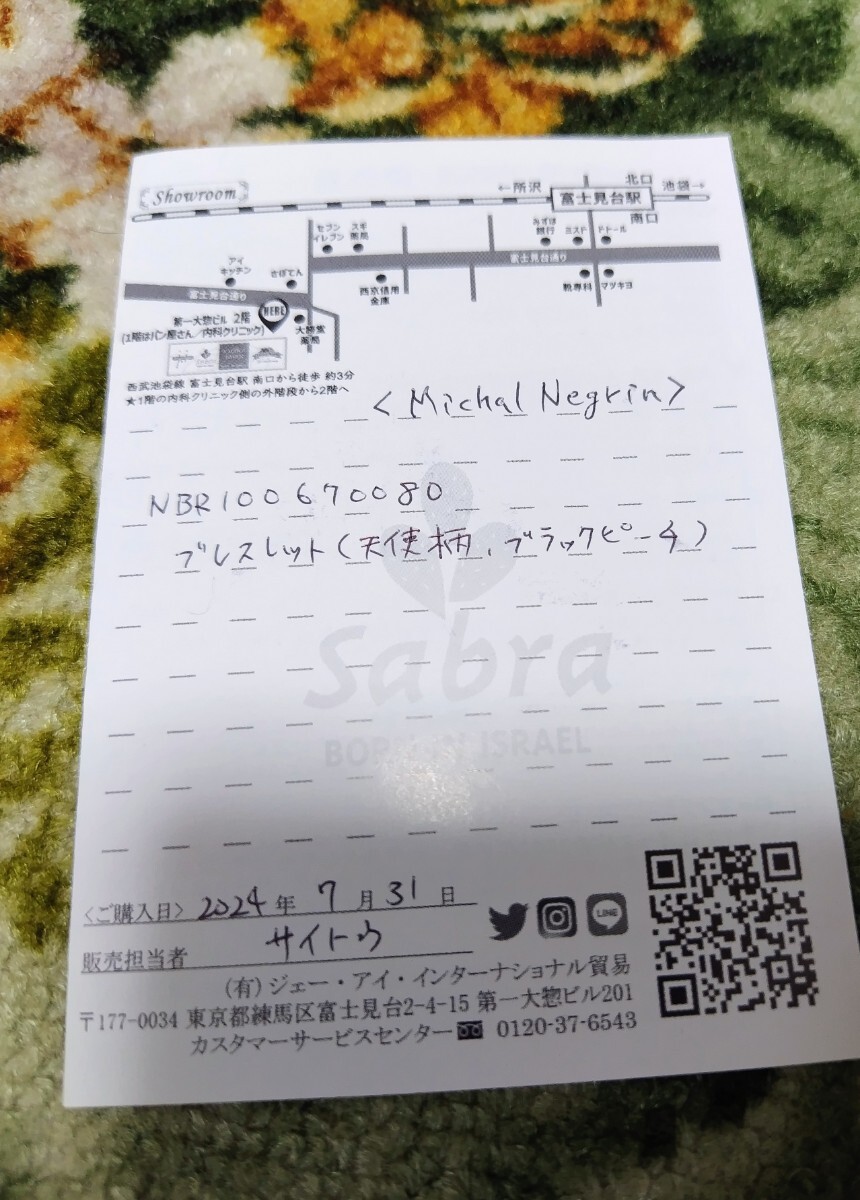 Showroom
←所沢
北口
池袋→
富士見台駅
南口
セブン
イレブン
スギ
薬局
みずほ
銀行
ミスド
ドトール
富士見台通り
アイ
キッチン
さぼてん
西京信用
金庫
靴専科
マツキヨ
富士見台通り
HERE
第一大惣ビル 2階
(1階はパン屋さん/内科クリニック)
薬局
西武池袋線 富士見台駅 南口から徒歩 約3分
★1階の内科クリニック側の外階段から2階へ
<Michal Negrin>
NBR100670080
ブレスレット(天使柄、ブラックピーチ)
Sabra
BORN IN ISRAEL
〈ご購入日〉2024年 7月31日
販売担当者 サイトウ
LINE
(有)ジェー・アイ・インターナショナル貿易
〒177-0034 東京都練馬区富士見台2-4-15 第一大惣ビル201
カスタマーサービスセンター 0120-37-6543